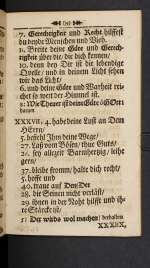 7. Gerechtigkeit und Recht hilffest
du beyde Menschen und Vieh.
11. Breite deine Güte und Gerech-
tigkeit über die, die dich kennen/
10. denn bey Dir ist die lebendige
Quelle/ und in deinem Licht sehen
wir das Licht/
6. und deine Güte und Warheit rei-
chet so weit der Himmel ist.
8. Wie theuer ist deine Güte ô Gott
XXXVII, 4. habe deine Lust an dem
HErrn/
5. befiehl Ihm deine Wege/
27. Laß vom Bösen/ thue Guts/
sey allezeit Barmhertzig/ leihe
gern/
37. bleibe fromm/ halte dich recht/
5. hoffe und
40. traue auf
28. die Seinen nicht verläst/
39. ihnen in der Noht hilfft und ih-
re Stärcke ist/
5. Der wirds wol machen